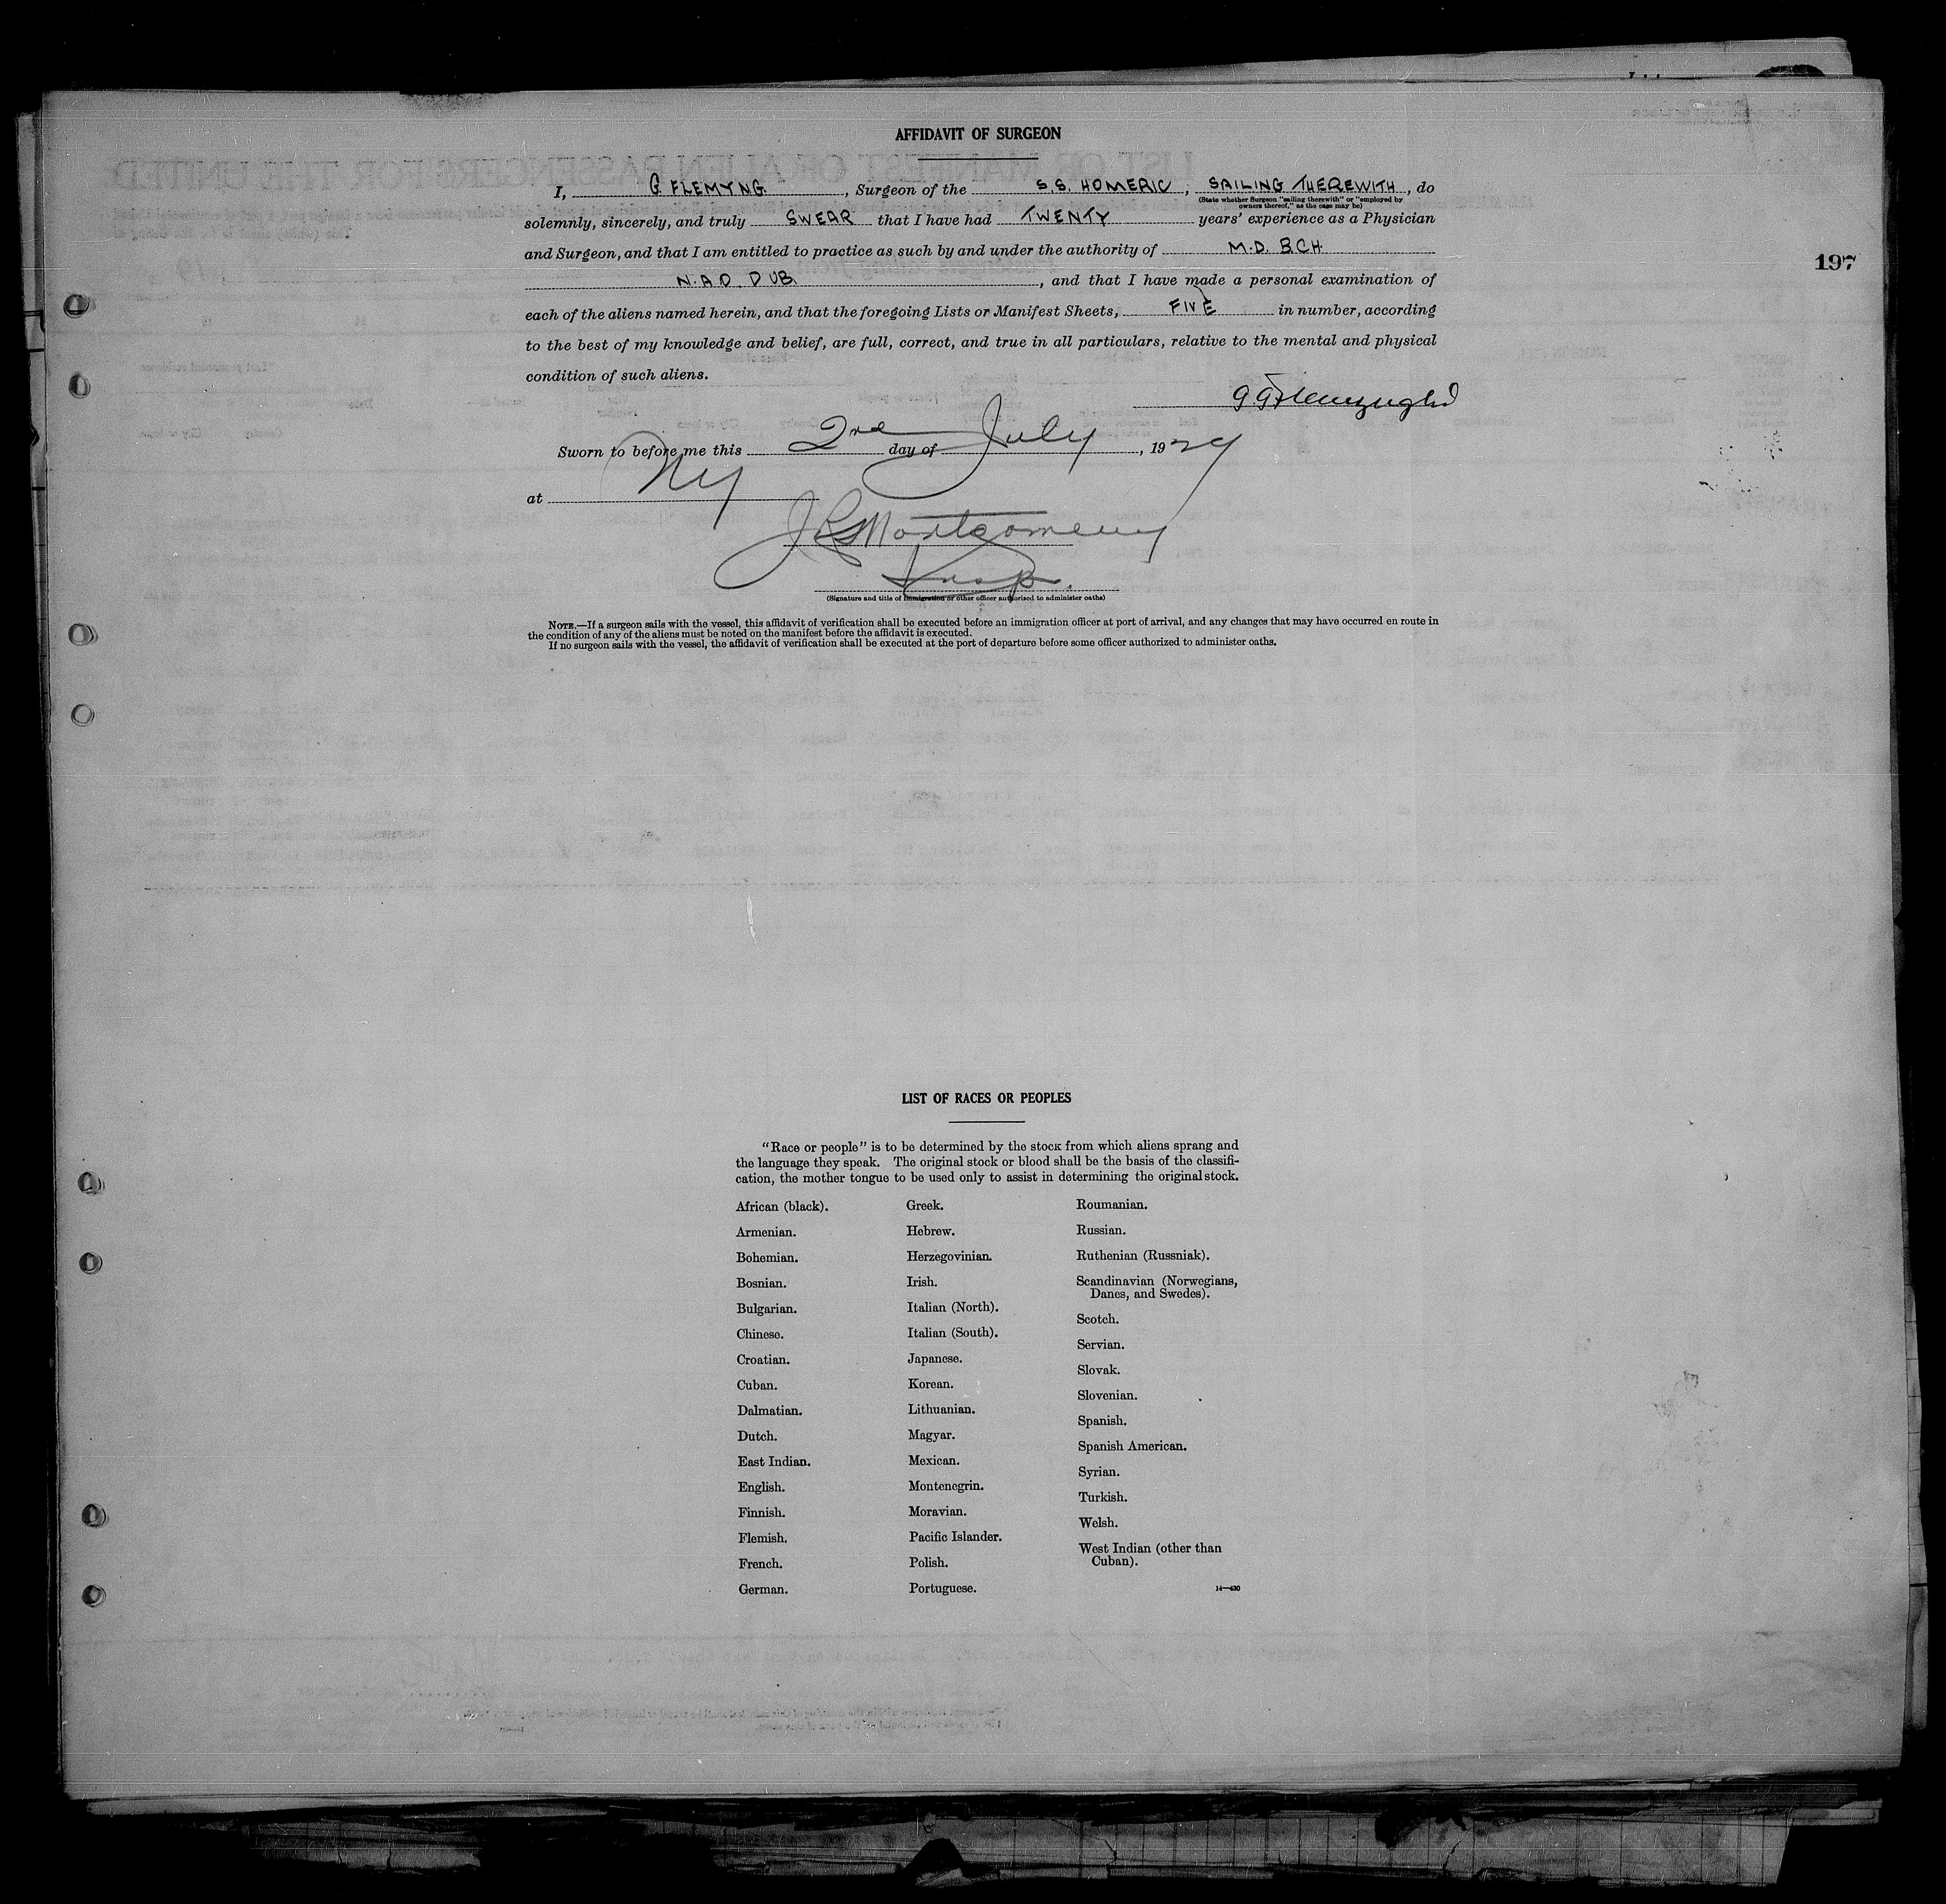 AFFIDAVIT OF SURGEON
I, G. FLEMYNG. , Surgeon of the S.S. HOMERIC , SAILING THEREWITH , do
(State whether Surgeon "sailing therewith" or "employed by
owners thereof," as the case may be)
solemnly, sincerely, and truly SWEAR that I have had TWENTY years' experience as a Physician
and Surgeon, and that I am entitled to practice as such by and under the authority of M.D. B.C.H.
N.A.D. DUB. , and that I have made a personal examination of
each of the aliens named herein, and that the foregoing Lists or Manifest Sheets, FIVE in number, according
to the best of my knowledge and belief, are full, correct, and true in all particulars, relative to the mental and physical
condition of such aliens.
Sworn to before me this 2nd day of July , 1929
at NY
J R Montgomery
Insp.
(Signature and title of immigration or other officer authorized to administer oaths)
NOTE.—If a surgeon sails with the vessel, this affidavit of verification shall be executed before an immigration officer at port of arrival, and any changes that may have occurred en route in
the condition of any of the aliens must be noted on the manifest before the affidavit is executed.
If no surgeon sails with the vessel, the affidavit of verification shall be executed at the port of departure before some officer authorized to administer oaths.
197
LIST OF RACES OR PEOPLES
"Race or people" is to be determined by the stock from which aliens sprang and
the language they speak. The original stock or blood shall be the basis of the classifi-
cation, the mother tongue to be used only to assist in determining the original stock.
African (black).
Armenian.
Bohemian.
Bosnian.
Bulgarian.
Chinese.
Croatian.
Cuban.
Dalmatian.
Dutch.
East Indian.
English.
Finnish.
Flemish.
French.
German.
Greek.
Hebrew.
Herzegovinian.
Irish.
Italian (North).
Italian (South).
Japanese.
Korean.
Lithuanian.
Magyar.
Mexican.
Montenegrin.
Moravian.
Pacific Islander.
Polish.
Portuguese.
Roumanian.
Russian.
Ruthenian (Russniak).
Scandinavian (Norwegians,
Danes, and Swedes).
Scotch.
Servian.
Slovak.
Slovenian.
Spanish.
Spanish American.
Syrian.
Turkish.
Welsh.
West Indian (other than
Cuban).
14—430